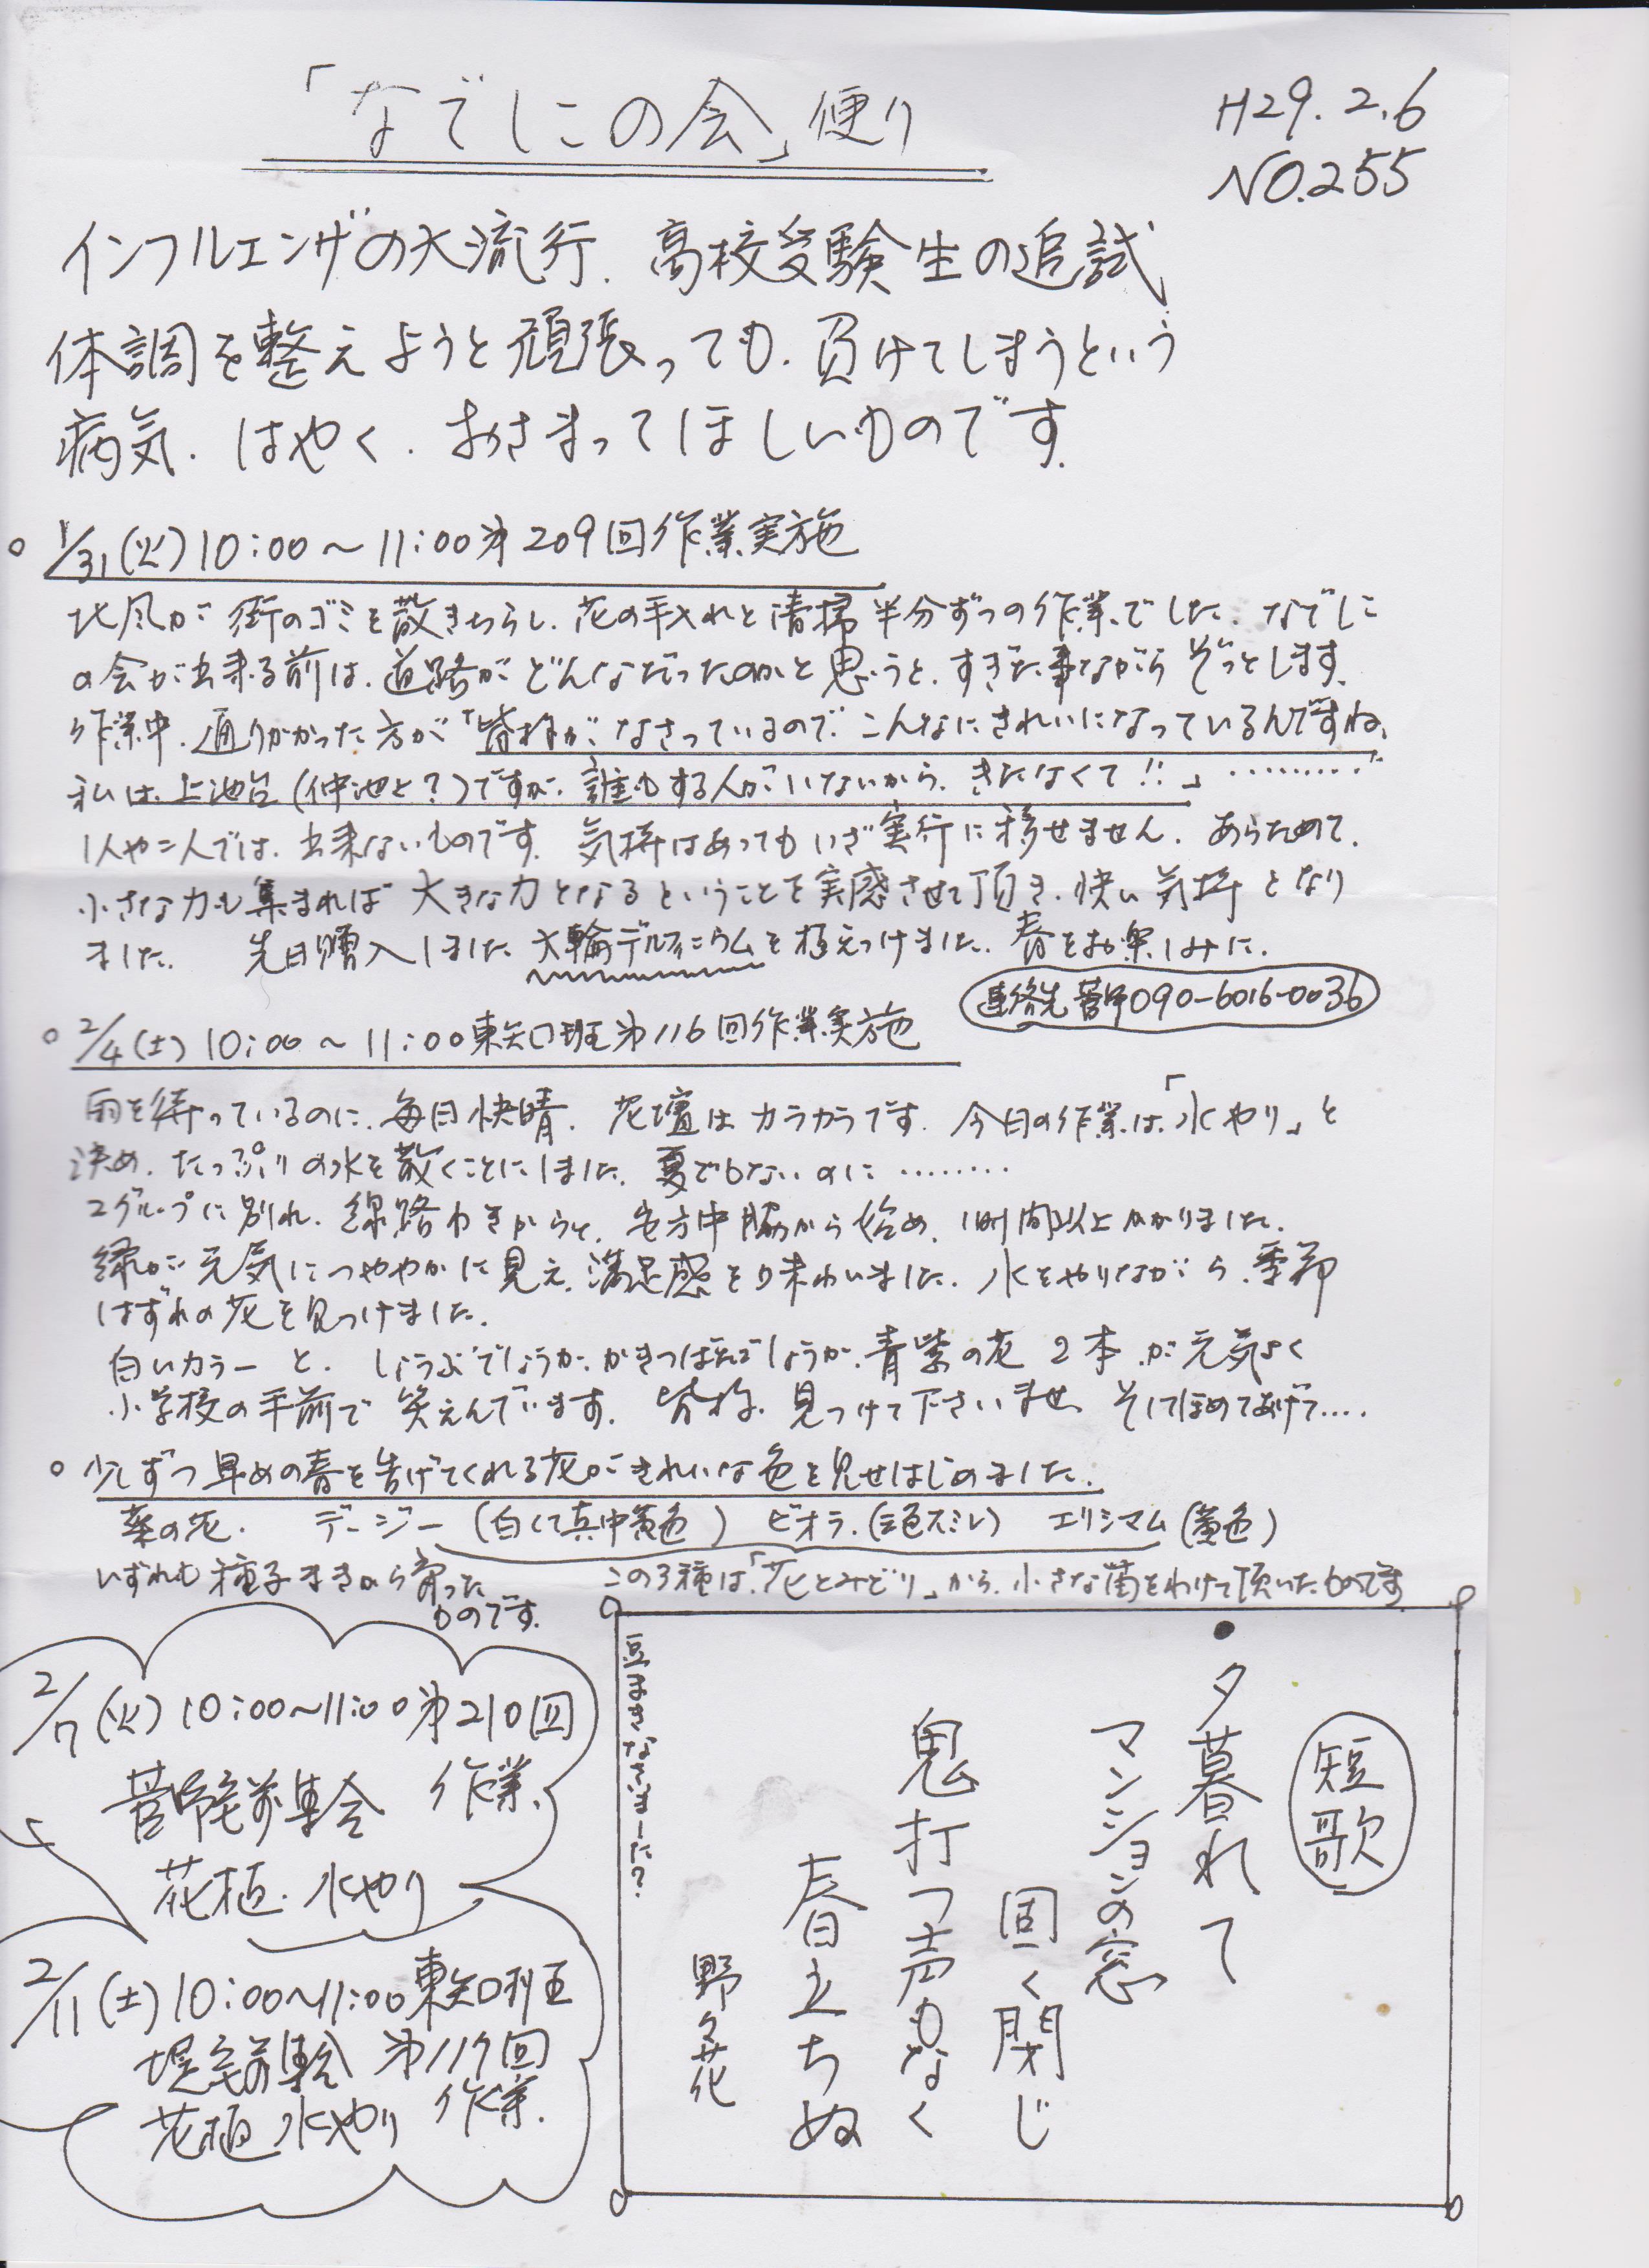 「なでしこの会」便り
H29.2.6
NO.255
インフルエンザの大流行.高校受験生の追試
体調を整えようと頑張っても.負けてしまうという
病気.はやく.おさまってほしいものです.
○ 1/31(火)10:00〜11:00第209回作業実施
北風が街のゴミを散きちらし.花の手入れと清掃半分ずつの作業でした.なでしこ
の会が出来る前は.道路がどんなだったのかと思うと.すぎた事ながらぞっとします.
作業中.通りかかった方が「皆様がなさっているので.こんなにきれいになっているんですね、
私は.上池台(仲池と?)ですが.誰もする人がいないから.きたなくて!!」………
1人や二人では.出来ないものです.気持はあってもいざ実行に移せません.あらためて.
小さな力も集まれば大きな力となるということを実感させて頂き.快い気持となり
ました. 先日購入しました大輪デルフィニウムを植えつけました.春をお楽しみに.
連絡先 菅野090-6016-0036
○ 2/4(土)10:00〜11:00東矢口班第116回作業実施
雨を待っているのに.毎日快晴.花壇はカラカラです.今日の作業は「水やり」と
決め.たっぷりの水を散くことにしました.夏でもないのに………
2グループに別れ.線路わきからと.安方中脇から始め.1時間以上かかりました.
緑が元気につややかに見え.満足感を味わいました.水をやりながら.季節
はずれの花を見つけました.
白いカラーと.しょうぶでしょうか.かきつばたでしょうか.青紫の花2本が元気よく
小学校の手前で笑えんでいます.皆様.見つけて下さいませ そしてほめてあげて....
○ 少しずつ早めの春を告げてくれる花がきれいな色を見せはじめました.
菜の花. デージー(白くて真中黄色) ビオラ.(三色スミレ) エリシマム(黄色)
いずれも種子まきから育った
ものです.
この3種は「花とみどり」から.小さな苗をわけて頂いたものです
2/7(火)10:00〜11:00第210回
菅野宅前集合 作業.
花植.水やり
2/11(土)10:00〜11:00東矢口班
堤宅前集合 第117回
花植 水やり 作業.
短歌
●夕暮れて
マンションの窓
固く閉じ
鬼打つ声もなく
春立ちぬ
野々花